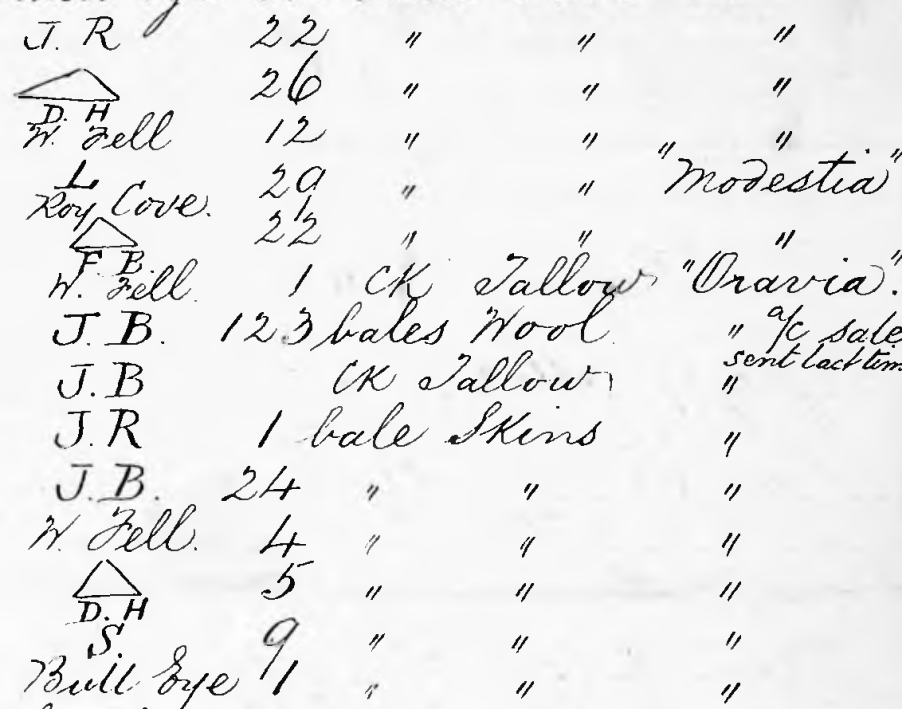 J. R 22 " " "
26 " " "
D. H
W. Fell 12 " " "
L 29 " " "Modestia"
Roy Cove.
22 " " "
F B.
W. Fell. 1 CK Tallow "Oravia".
J. B. 123 bales Wool " a/c sale
sent last tim
J. B CK Tallow "
J. R 1 bale Skins "
J. B. 24 " " "
W. Fell. 4 " " "
5 " " "
D. H
S. 9 " " "
Bull Eye 1 " " "